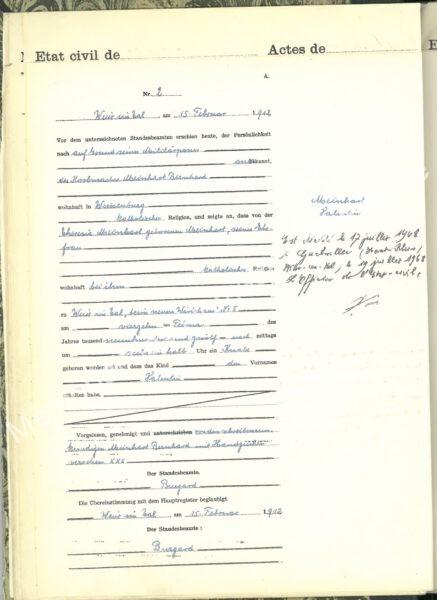 Etat civil de
Actes de
A.
Nr. 2
Weiler im Tal, am 15. Februar 1912
Vor dem unterzeichneten Standesbeamten erschien heute, der Persönlichkeit
nach auf Grund seines Militärpasses
anerkannt,
der Korbmacher Meinhart Bernhard
wohnhaft in Weissenburg
katholischer Religion, und zeigte an, dass von der
Theresia Meinhart geborenen Meinhart, seiner Ehe-
frau
katholischer Religion
wohnhaft bei ihm
zu Weiler im Tal,
am vierzehnten Februar des
Jahres tausend neunhundert und zwölf nach mittags
um Uhr ein Knabe
geboren worden ist und dass das Kind den Vornamen
Valentin
erhalten habe.
Vorgelesen, genehmigt und unterschrieben
Meinhart Bernhard mit Handzeichen
versehen XXX
Der Standesbeamte.
Burgard
Die Übereinstimmung mit dem Hauptregister beglaubigt
Weiler im Tal, am 15. Februar 1912
Der Standesbeamte:
Burgard
Meinhart
Valentin
Est décédé le 17 juillet 1968
à Guebwiller (Haut-Rhin)
le 19 juillet 1968
L'Officier de l'état-civil,